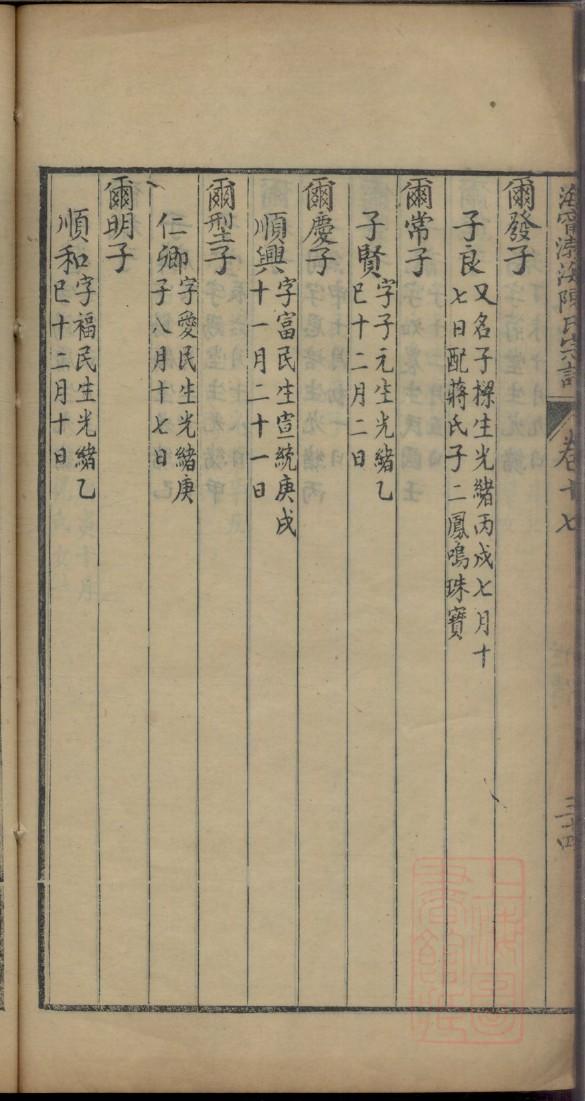 海寧渤海陳氏宗譜
卷十七
三十四
爾發子
子良
又名子樑生光緒丙戌七月十
七日配蔣氏子二鳳鳴珠寶
爾常子
子賢
字子元生光緒乙
巳十二月二日
爾慶子
順興
字富民生宣統庚戌
十一月二十一日
爾型子
仁卿
字愛民生光緒庚
子八月十七日
爾明子
順和
字福民生光緒乙
巳十二月十日
上海圖書館藏